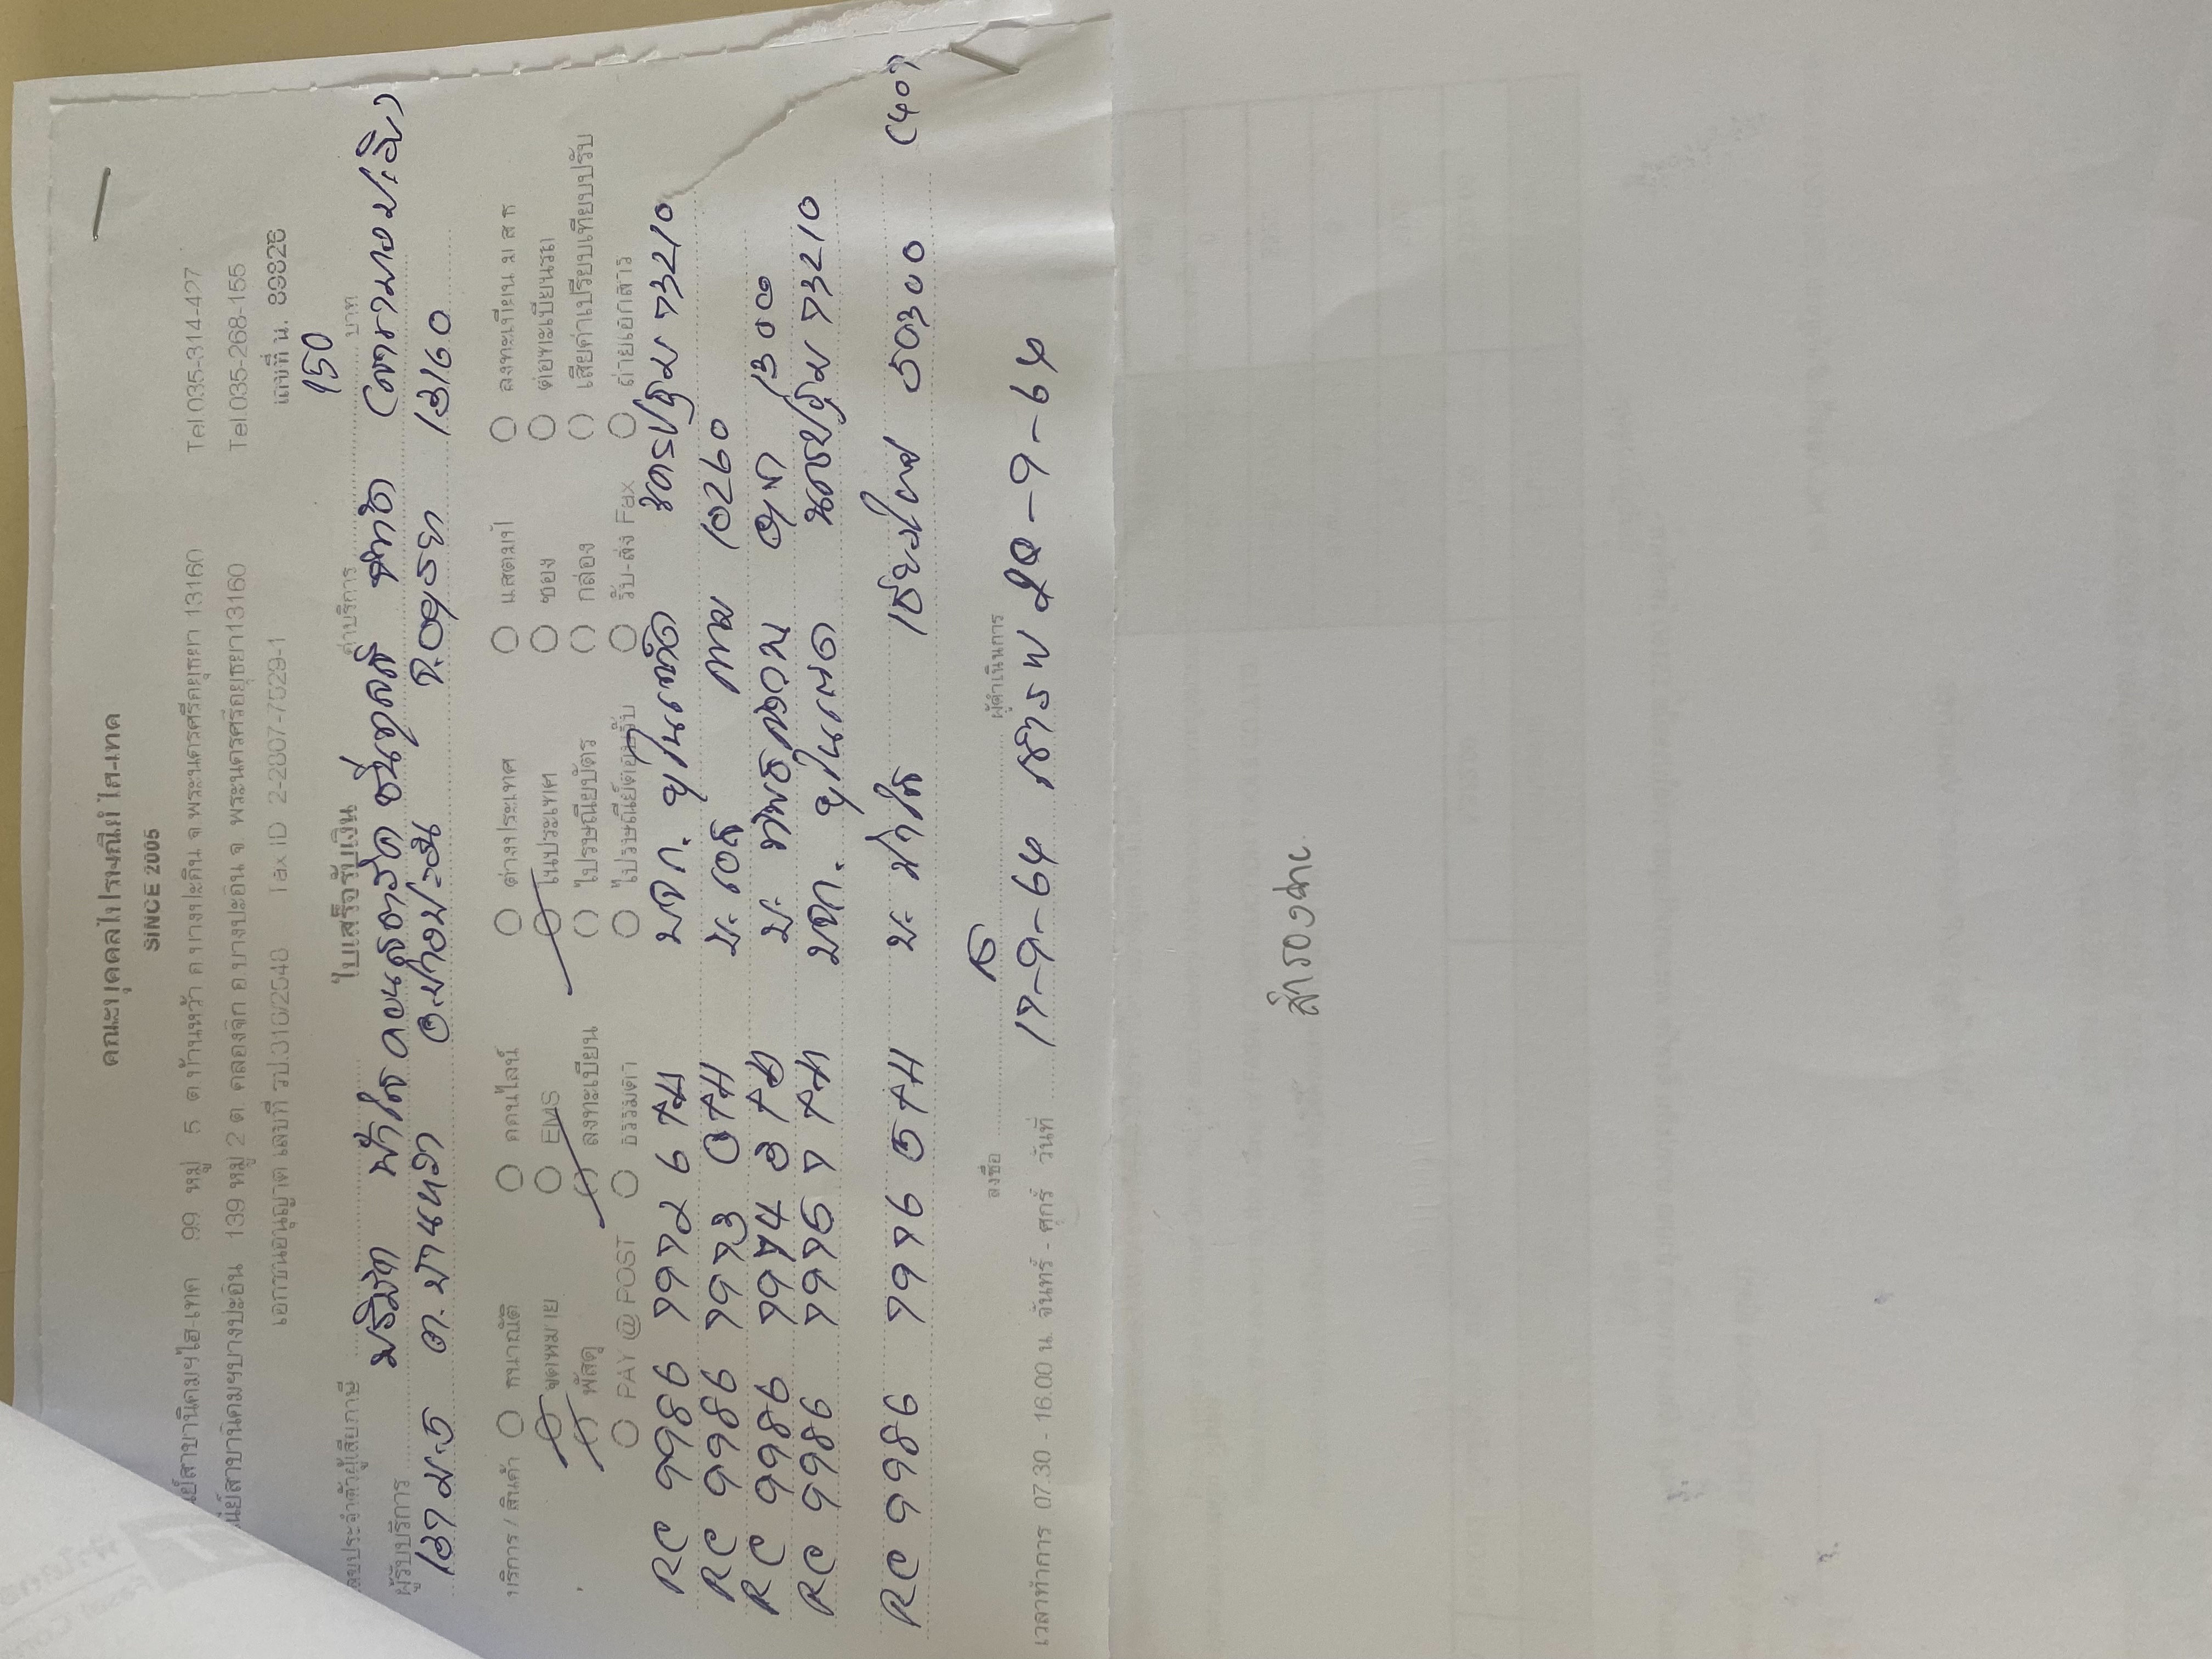 คณะบุคคลไปรษณีย์ ไฮ-เทค
SINCE 2005
นย์สาขานิคมฯไฮ-เทค 99 หมู่ 5 ต.บ้านหว้า อ.บางปะอิน จ.พระนครศรีอยุธยา 13160 Tel.035-314-427
ณีย์สาขานิคมฯบางปะอิน 139 หมู่ 2 ต. คลองจิก อ.บางปะอิน จ. พระนครศรีอยุธยา13160 Tel.035-268-155
เอกชนอนุญาต เลขที่ รป.316/2548 Tax ID 2-2807-7529-1 เลขที่ น. 89826
ลขประจำตัวผู้เสียภาษี ใบเสร็จรับเงิน ค่าบริการ 150 บาท
ผู้รับบริการ บริษัท ฟ้าใสคอนสตรัคชั่นทูลส์ จำกัด (สาขาบางปะอิน)
137 ม.5 ต.บ้านหว้า อ.บางปะอิน จ.อยุธยา 13160
บริการ / สินค้า ธนาณัติ ออนไลน์ ต่างประเทศ แสตมป์ ลงทะเบียน ม ส ธ
จดหมาย EMS ในประเทศ ซอง ต่อทะเบียนรถ
พัสดุ ลงทะเบียน ไปรษณียบัตร กล่อง เสียค่าเปรียบเทียบปรับ
PAY @ POST ธรรมดา ไปรษณีย์ตอบรับ รับ-ส่ง Fax ถ่ายเอกสาร
RC 9986 7972 6 TH บจก. ยูไนเต็ด นครปฐม 73210
RC 9986 7973 0 TH บ. เอส กทม 10260
RC 9986 7974 3 TH บ. อยุธยา 1300
RC 9986 7975 7 TH บจก. ยูไนเต็ด นครปฐม 73210
RC 9986 7976 5 TH บ. ฟ้าใส เชียงใหม่ 50300 (40)
ลงชื่อ ผู้ดำเนินการ
เวลาทำการ 07.30 - 16.00 น. จันทร์ - ศุกร์ วันที่ 17-9-64 20-9-64
สำรองจ่าย